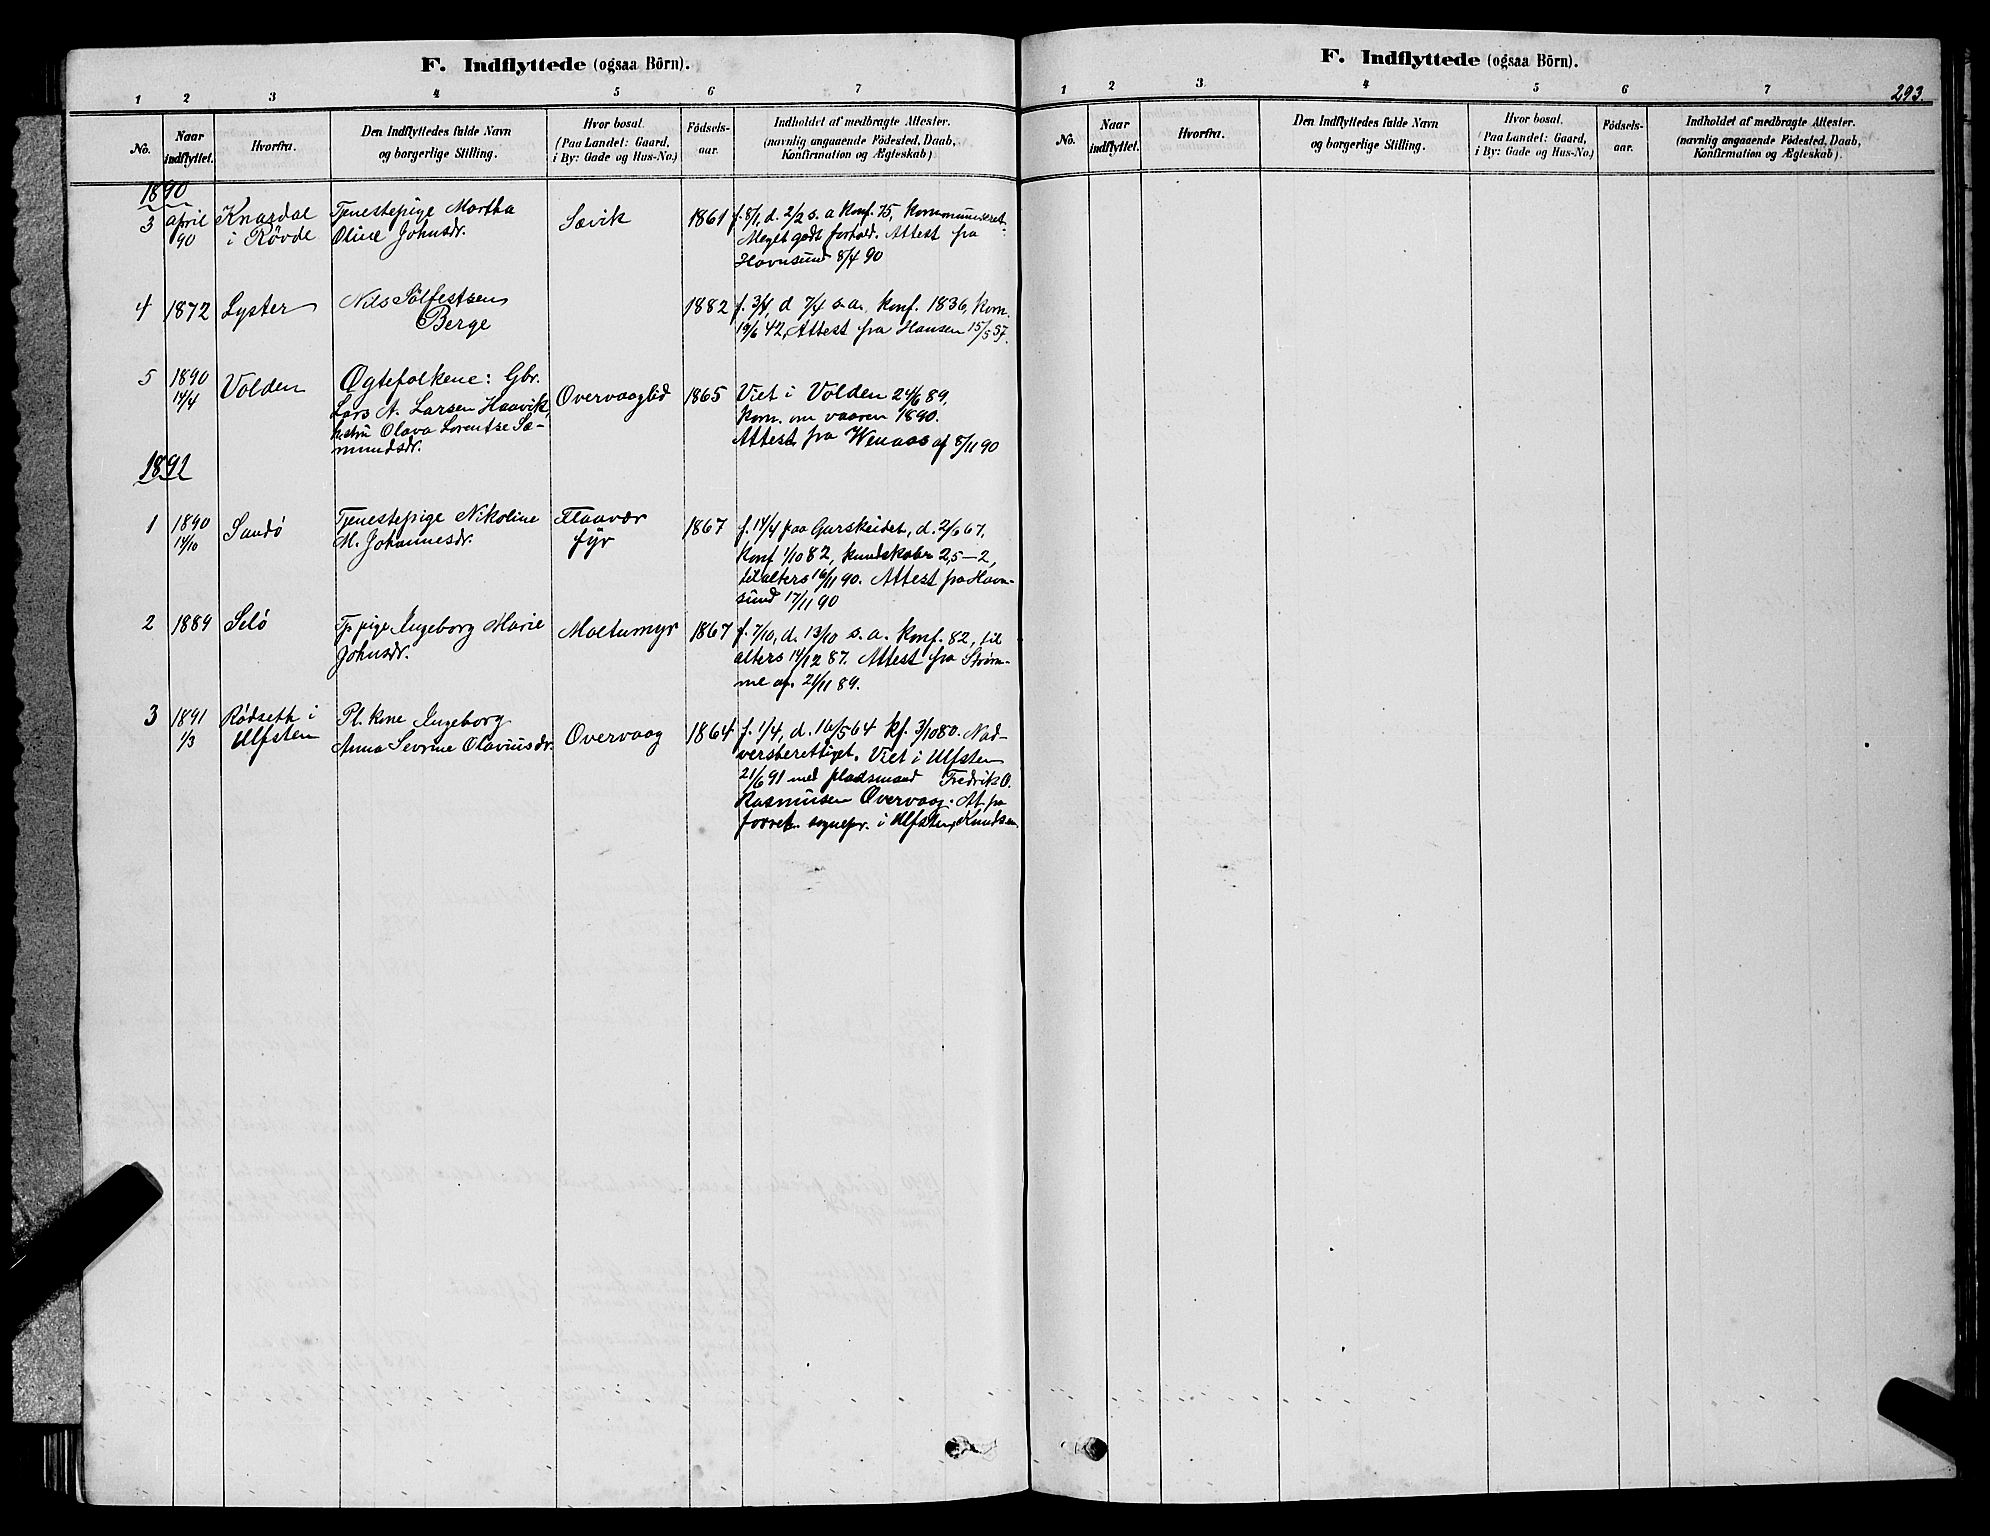 F. Indflyttede (ogsaa Börn).
1 2 3 4 5 6 7
No. Naar indflyttet. Hvorfra. Den Indflyttedes fulde Navn og borgerlige Stilling. Hvor bosat. (Paa Landet: Gaard, i By: Gade og Hus-No.) Födsels-aar. Indholdet af medbragte Attester. (navnlig angaaende Födested, Daab, Konfirmation og Ægteskab).
1890
3 april 90 Knardal i Røvde Tjenestepige Martha Oline Johnsdr. Sævik 1861 f. 8/1, d. 2/2 s. a Konf. 75, Kommuniceret.
Meget godt forhold. Attest fra
Havnsund 8/4 90
4 1872 Lyster Nils Sølfestsen Berge 1882 f. 3/4, d 7/4 s. a. Konf. 1836, Kom.
19/6 42, Attest fra Hansen 15/5 57.
5 1890 14/4 Volden Ægtefolkene: Gbr.
Lars N. Larsen Haavik,
hustru Olava Lorentse Sæ-
mundsdr. Overvaaglid 1865 Viet i Volden 24/6 89.
Kom. om vaaren 1890.
Attest fra Wenaas af 8/11 90
1891
1 1890 14/10 Sandö Tjenestepige Nikoline
M. Johannesdr. Flaavær fyr 1867 f. 14/4 paa Gurskeidet, d. 2/6 67,
Konf 1/10 82, kundskaber 2,5–2,
til alters 16/11 90. Attest fra Havn-
sund 17/11 90
2 1889 Selö Tj. pige Ingeborg Marie
Johnsdr. Moltumyr 1867 f. 7/10, d. 13/10 s. a. Konf. 82, til
alters 14/12 87. Attest fra Strøm-
me af. 21/11 89.
3 1891 1/3 Rødseth i Ulfsten Pl. kone Ingeborg
Anna Sevrine Olaviusdr. Overvaag 1864 f. 1/4, d. 16/5 64 kf. 3/10 80. Nad-
versberettiget. Viet i Ulfsten
21/6 91 med pladsmand Fredrik O.
Rasmusen Overvaag. At. fra
forret. sognepr. i Ulfsten, Knudsen.
F. Indflyttede (ogsaa Börn).
293.
1 2 3 4 5 6 7
No. Naar indflyttet. Hvorfra. Den Indflyttedes fulde Navn og borgerlige Stilling. Hvor bosat. (Paa Landet: Gaard, i By: Gade og Hus-No.) Födsels-aar. Indholdet af medbragte Attester. (navnlig angaaende Födested, Daab, Konfirmation og Ægteskab).